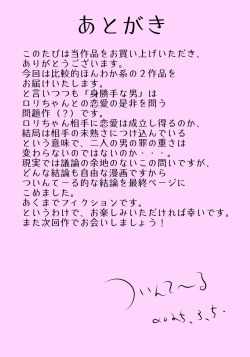 あとがき
このたびは当作品をお買い上げいただき、
ありがとうございます。
今回は比較的ほんわか系の２作品を
お届けいたします。
と言いつつも「身勝手な男」は
ロリちゃんとの恋愛の是非を問う
問題作（？）です。
ロリちゃん相手に恋愛は成立し得るのか、
結局は相手の未熟さにつけ込んでいる
という意味で、二人の男の罪の重さは
変わらないのではないのか・・・。
現実では議論の余地のないこの問いですが、
どんな結論も自由な漫画ですから
ついんてーる的な結論を最終ページに
こめました。
あくまでフィクションです。
というわけで、お楽しみいただければ幸いです。
また次回作でお会いしましょう！
ついんて～る
2025.3.5.